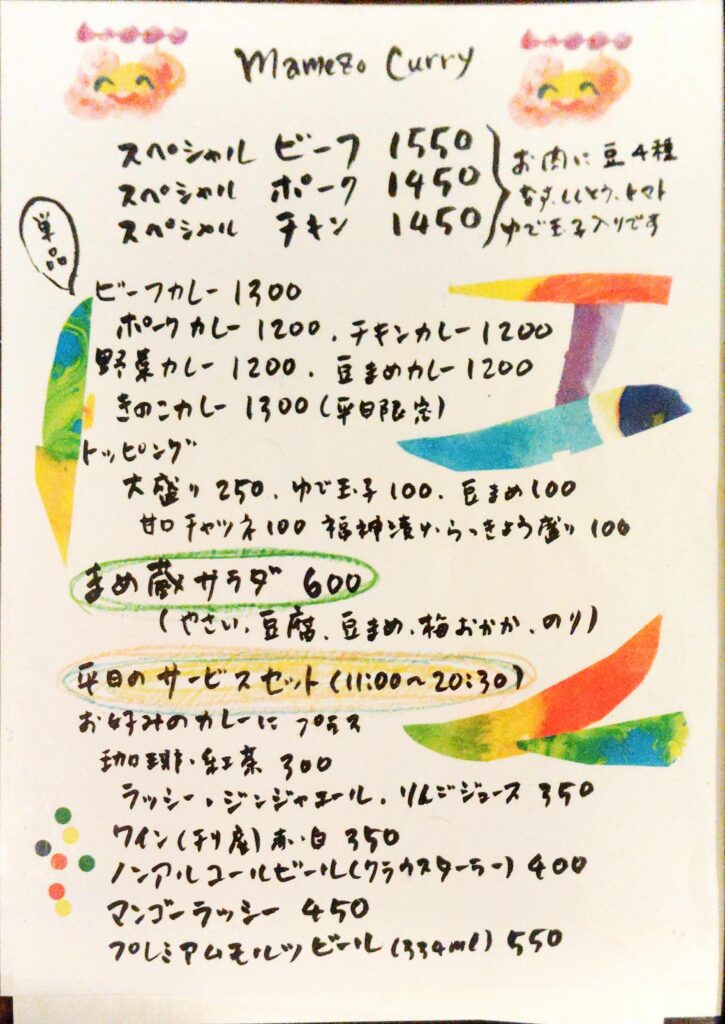 Mamezo Curry
スペシャル ビーフ 1550
スペシャル ポーク 1450
スペシャル チキン 1450
お肉に豆4種
なす、ししとう、トマト
ゆで玉子入りです
単品
ビーフカレー 1300
ポークカレー 1200、チキンカレー 1200
野菜カレー 1200、豆まめカレー 1200
きのこカレー 1300(平日限定)
トッピング
大盛り 250、ゆで玉子 100、豆まめ 100
甘口チャツネ 100 福神漬・らっきょう盛り 100
まめ蔵サラダ 600
(やさい、豆腐、豆まめ、梅おかか、のり)
平日のサービスセット(11:00〜20:30)
お好みのカレーに プラス
珈琲・紅茶 300
ラッシー・ジンジャエール、りんごジュース 350
ワイン(利庵)赤・白 350
ノンアルコールビール(クラウスターラー) 400
マンゴーラッシー 450
プレミアムモルツビール(334ml) 550